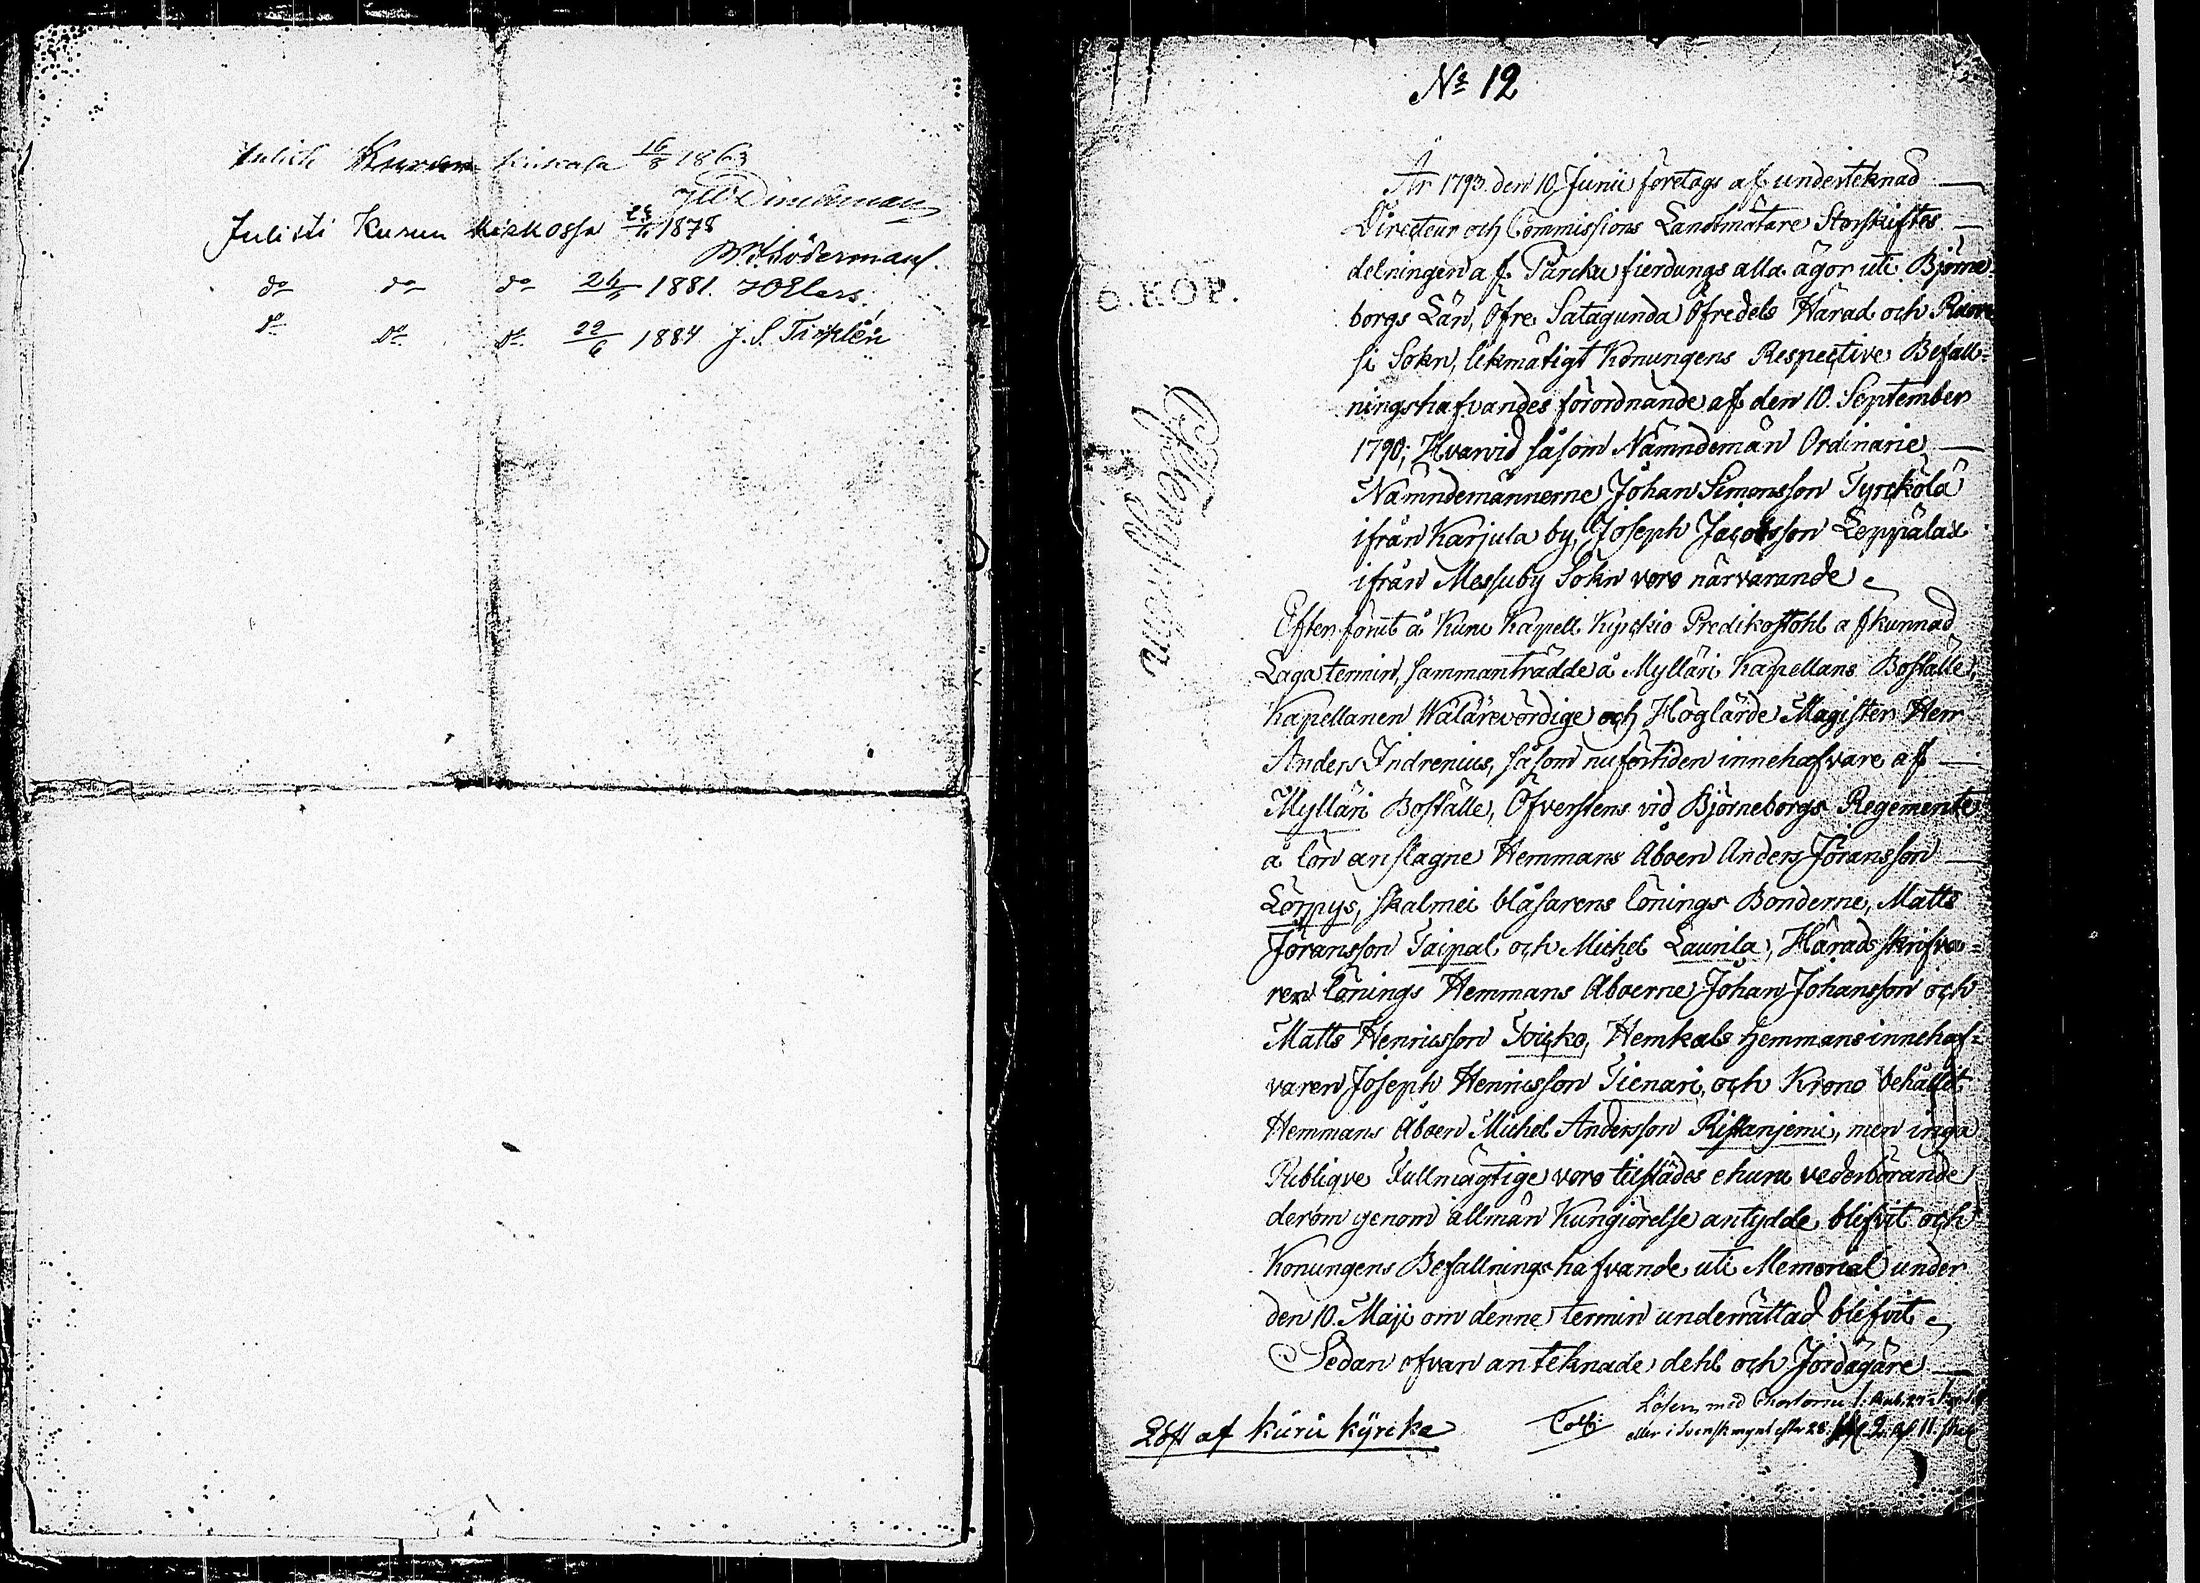 Julist Kurun kirkosa 16/8 1863
Julisti Kurun kirkossa 1878
W. Södermanl.
do do do 24/5 1881. HOElers.
do do do 22/6 1884 J. S. Tirklén
No 12
6. KOP.
År 1793. den 10 Junii företogs af underteknad
Directeur och Commissions Landtmätare Storskiftes
delningen af Parcku fierdungs alla ägor uti Björne-
borgs Län, Öfre Satagunda Öfredels Härad och Ruove
si Sokn, likmätigt Konungens Respective Befall-
ningshafvandes förordnande af den 10. September
1790; Hvarvid såsom Nämndemän Ordinarie
Nämndemännerne Johan Simonsson Tyrckölä
ifrån Karjula by, Joseph Jacobsson Leppälax
ifrån Messuby Sokn voro närvarande
Efter förut å Kuru Kapell Kyrckio Predikostohl afkunnad
Laga termin, sammanträdde å Mylläri Kapellans Boställe,
Kapellanen Wälärevördige och Höglärde Magister Herr
Anders Indrenius, såsom nu förtiden innehafvare af
Mylläri Boställe, Öfverstens vid Björneborgs Regemente
å lön anslagne Hemmans Åboen Anders Jöransson
Lörpys, skalmei blåsarens lönings Bonderne, Matts
Jöransson Taipal och Michel Laurila, Härads skrifva-
ren lönings Hemmans Åboerne Johan Johansson och
Matts Henricsson Toicko, Hemkals hemmans innehaf-
varen Joseph Henricsson Tienari, och Krono behållt
Hemmans Åboen Michel Andersson Ristanjemi, men inga
Publique Fullmägtige voro tillstädes ehuru vederbörande
derom genom allmän Kungiörelse antydde blifvit och
Konungens Befallningshafvande uti Memorial under
den 10. Maji om denne termin underrättad blifvit
Sedan ofvan anteknade dehl och Jordägare
Löst af Kuru kyrcka
Lösen med Chartorne
eller i Svensk mynt efter